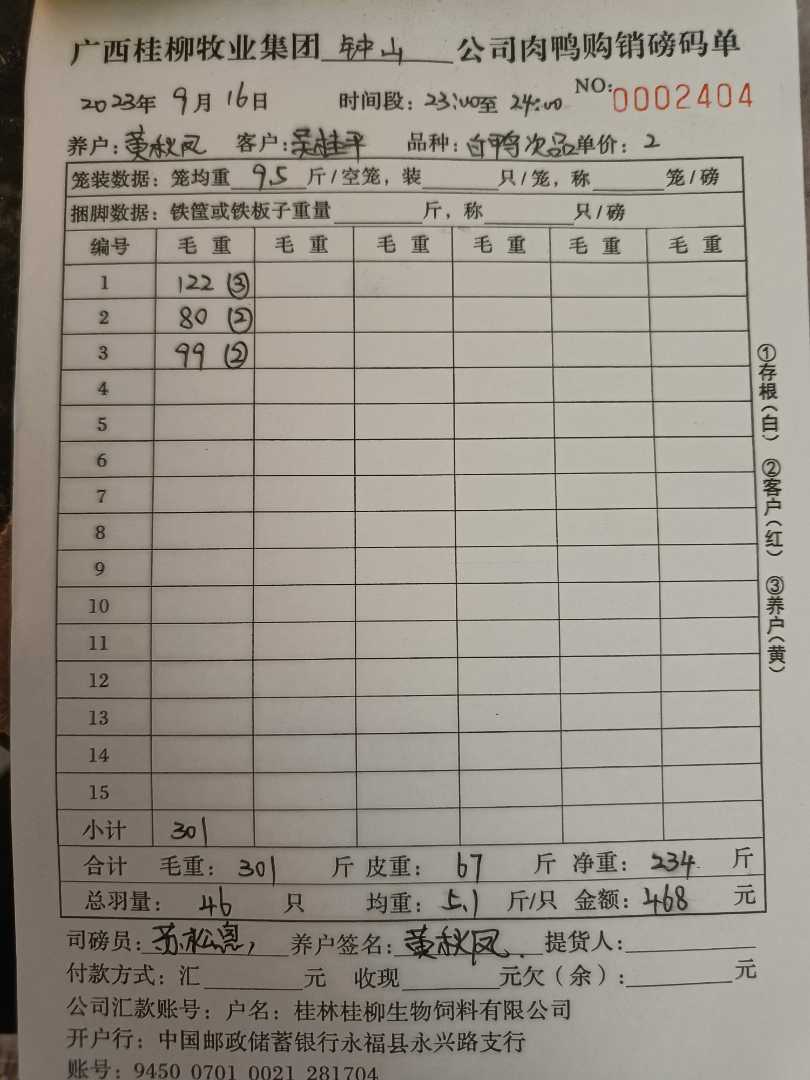 广西桂柳牧业集团钟山公司肉鸭购销磅码单
2023年9月16日 时间段：23:00至24:00 NO:0002404
养户：黄秋凤 客户：吴桂平 品种：白鸭次品 单价：2
笼装数据：笼均重9.5斤/空笼，装____只/笼，称____笼/磅
捆脚数据：铁筐或铁板子重量____斤，称____只/磅
编号 毛重 毛重 毛重 毛重 毛重 毛重
1 122 ③
2 80 ②
3 99 ②
4
5
6
7
8
9
10
11
12
13
14
15
小计 301
合计 毛重：301 斤 皮重：67 斤 净重：234 斤
总羽量：46 只 均重：5.1 斤/只 金额：468 元
司磅员：苏松 养户签名：黄秋凤 提货人：
付款方式：汇____元 收现____元欠（余）：____元
公司汇款账号：户名：桂林桂柳生物饲料有限公司
开户行：中国邮政储蓄银行永福县永兴路支行
账号：9450 0701 0021 281704
①存根（白） ②客户（红） ③养户（黄）